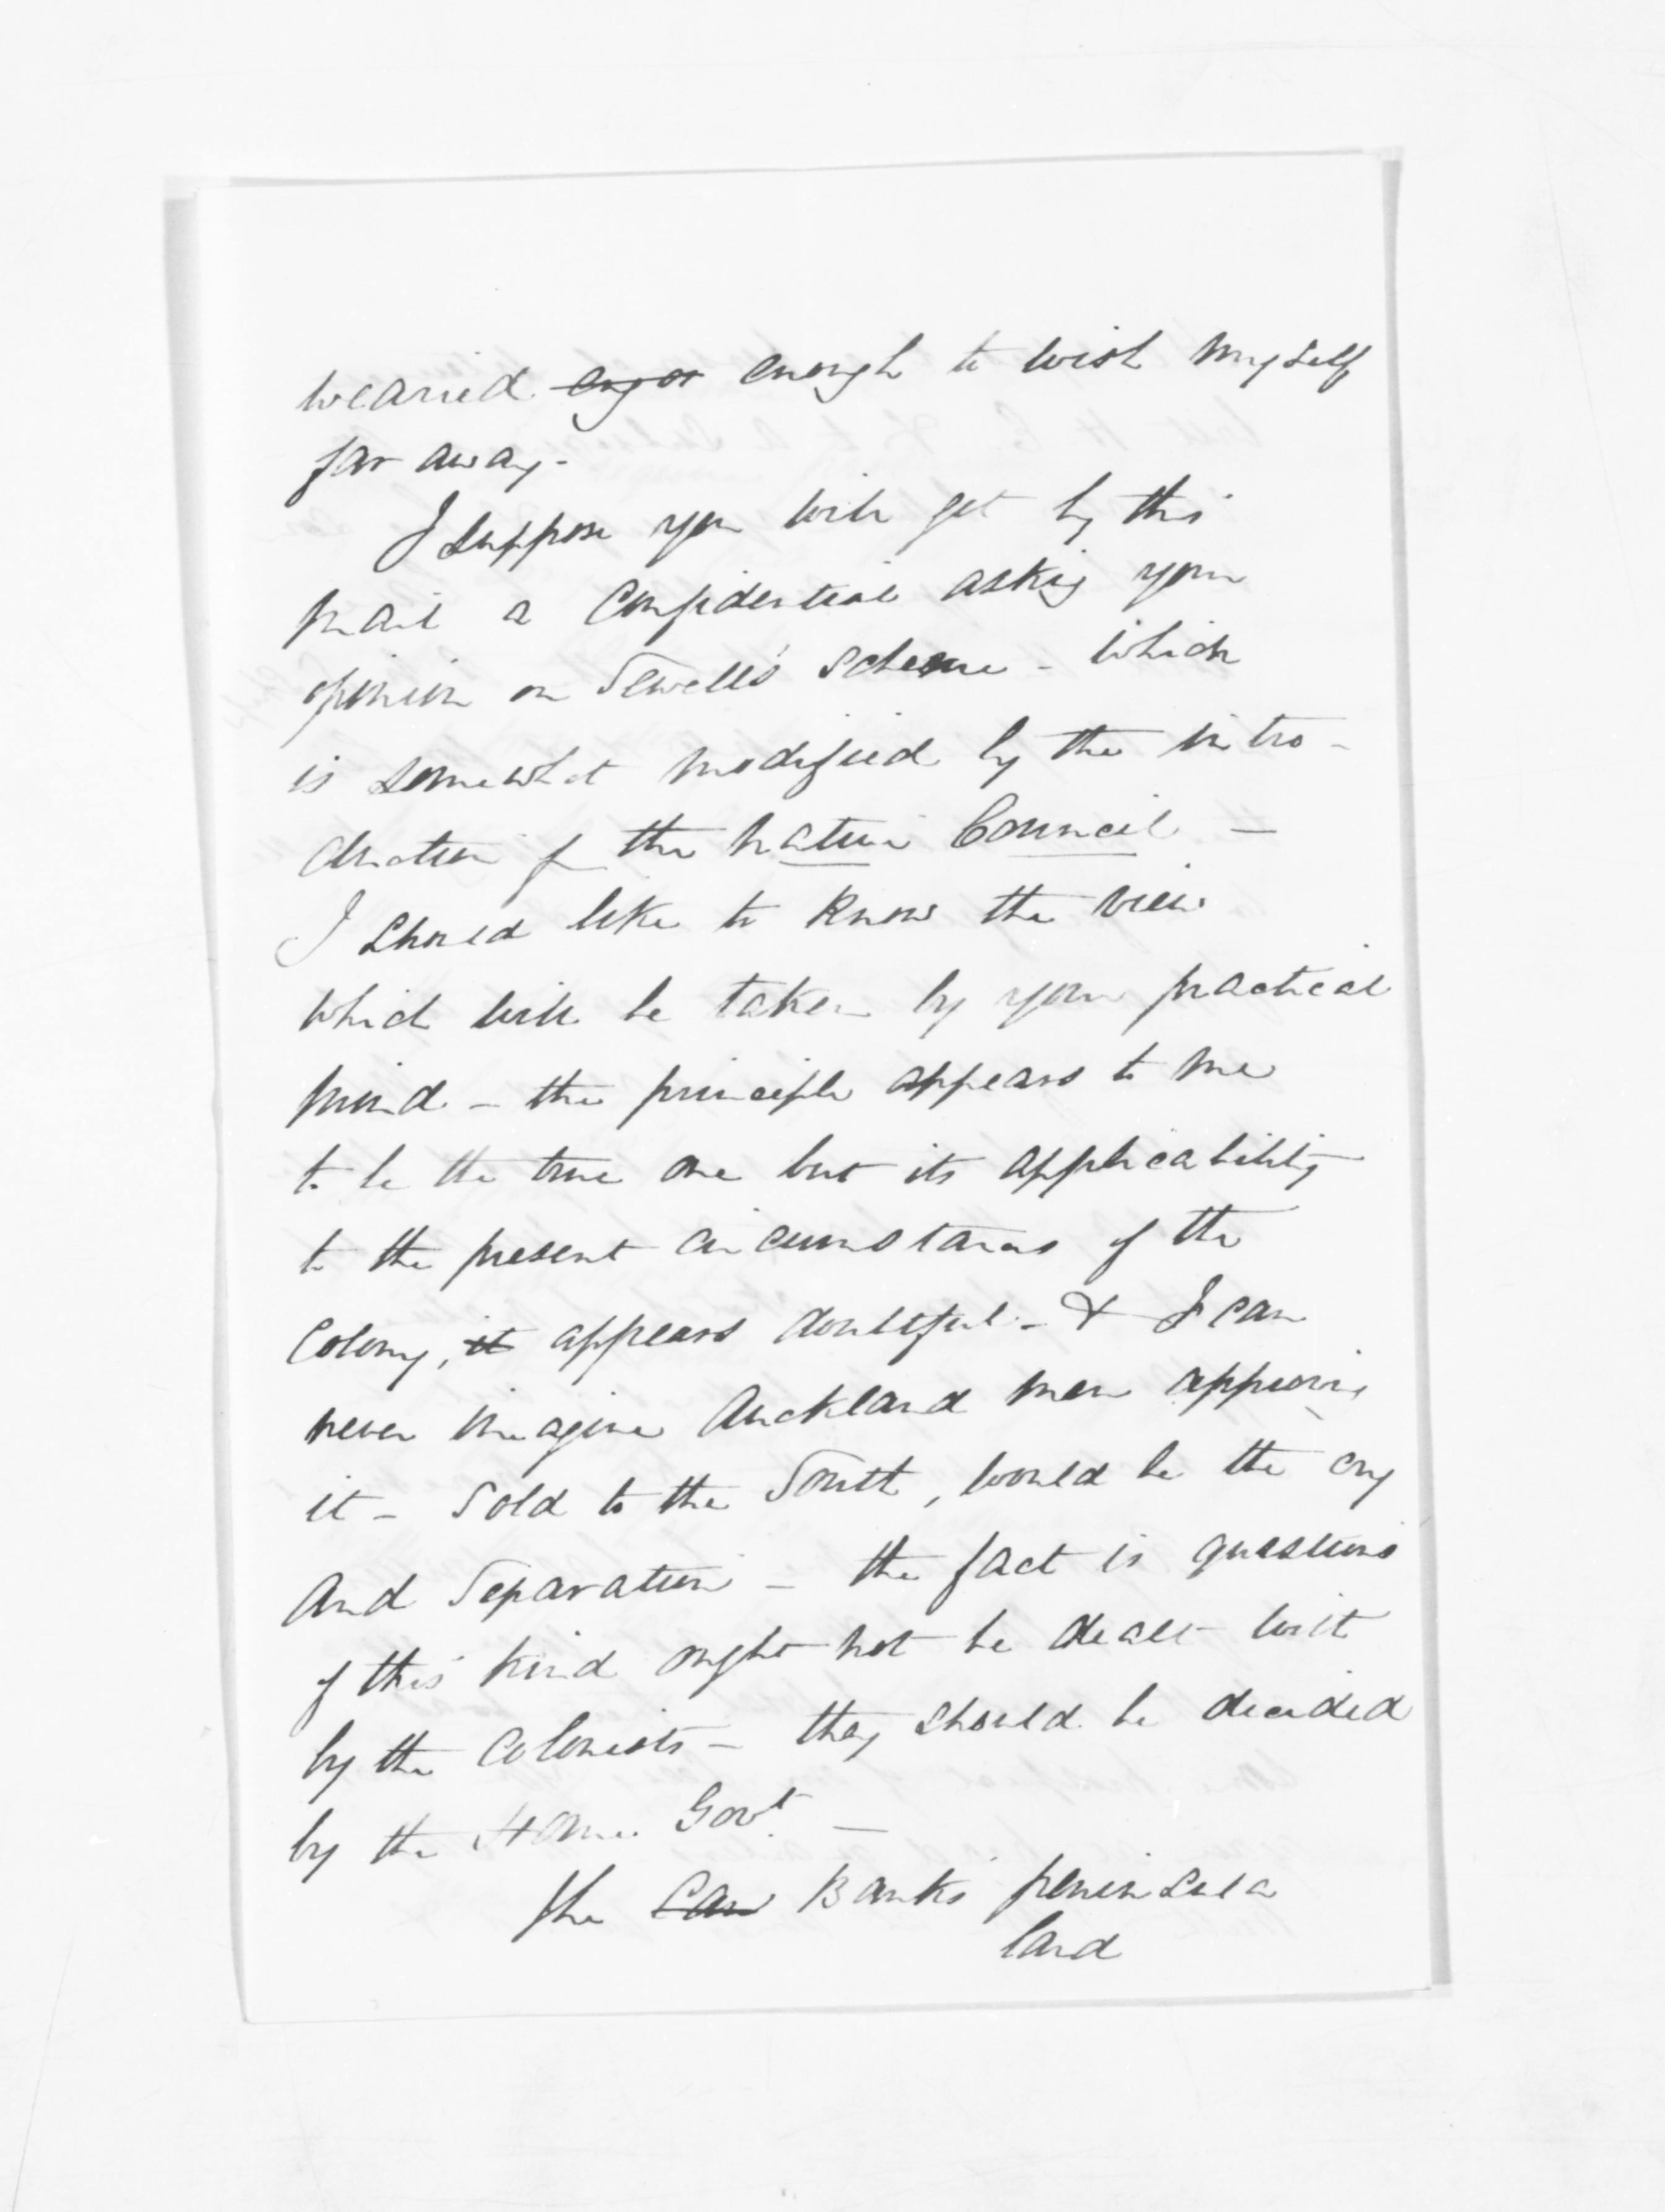 wearied enough to wish myself
far away -
I suppose you will get by this
mail a Confidential asking your
opinion on Sewell's scheme - which
is somewhat modified by the intro-
duction of the Native Council -
I should like to know the view
which will be taken by your practical
mind - the principle appears to me
to be the true one but its applicability
to the present circumstances of the
Colony, it appears doubtful - & I can
never imagine Auckland men approving
it - Sold to the South, would be the cry
and Separation - the fact is questions
of this kind ought not be dealt with
by the Colonists - they should be decided
by the Home Govt. -
The Banks peninsula
land